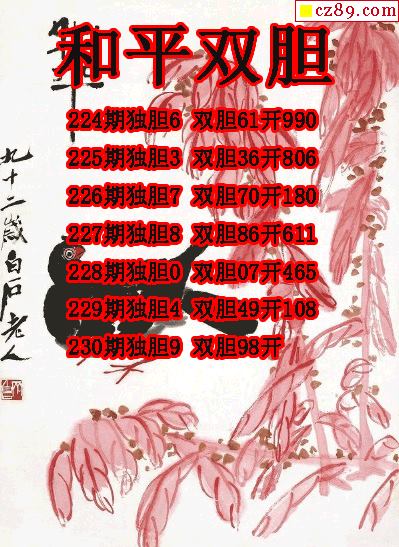 cz89.com
和平双胆
224期独胆6 双胆61开990
225期独胆3 双胆36开806
226期独胆7 双胆70开180
227期独胆8 双胆86开611
228期独胆0 双胆07开465
229期独胆4 双胆49开108
230期独胆9 双胆98开
九十二岁白石老人